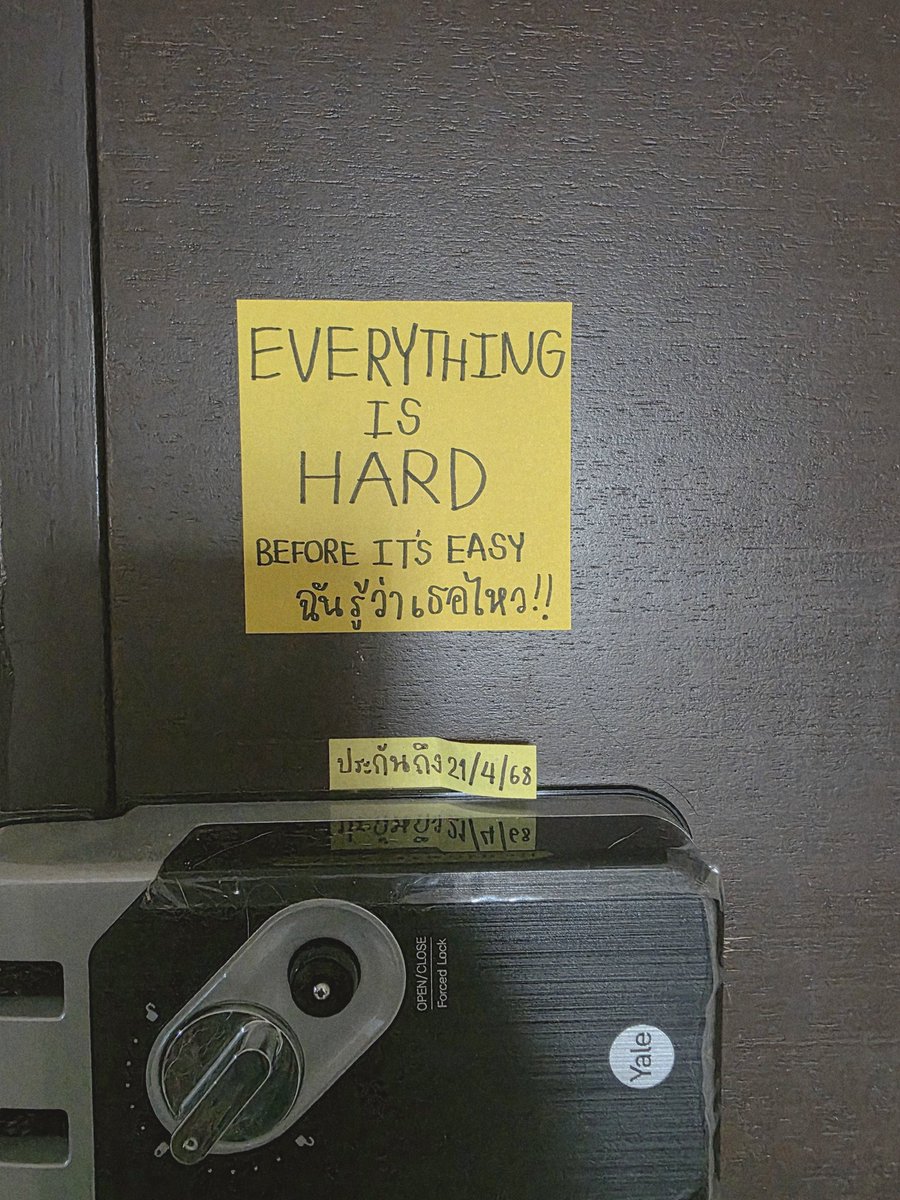 EVERYTHING
IS
HARD
BEFORE IT'S EASY
ฉันรู้ว่าเธอไหว!!
ประกันถึง 21/4/68
OPEN/CLOSE
Forced Lock
Yale